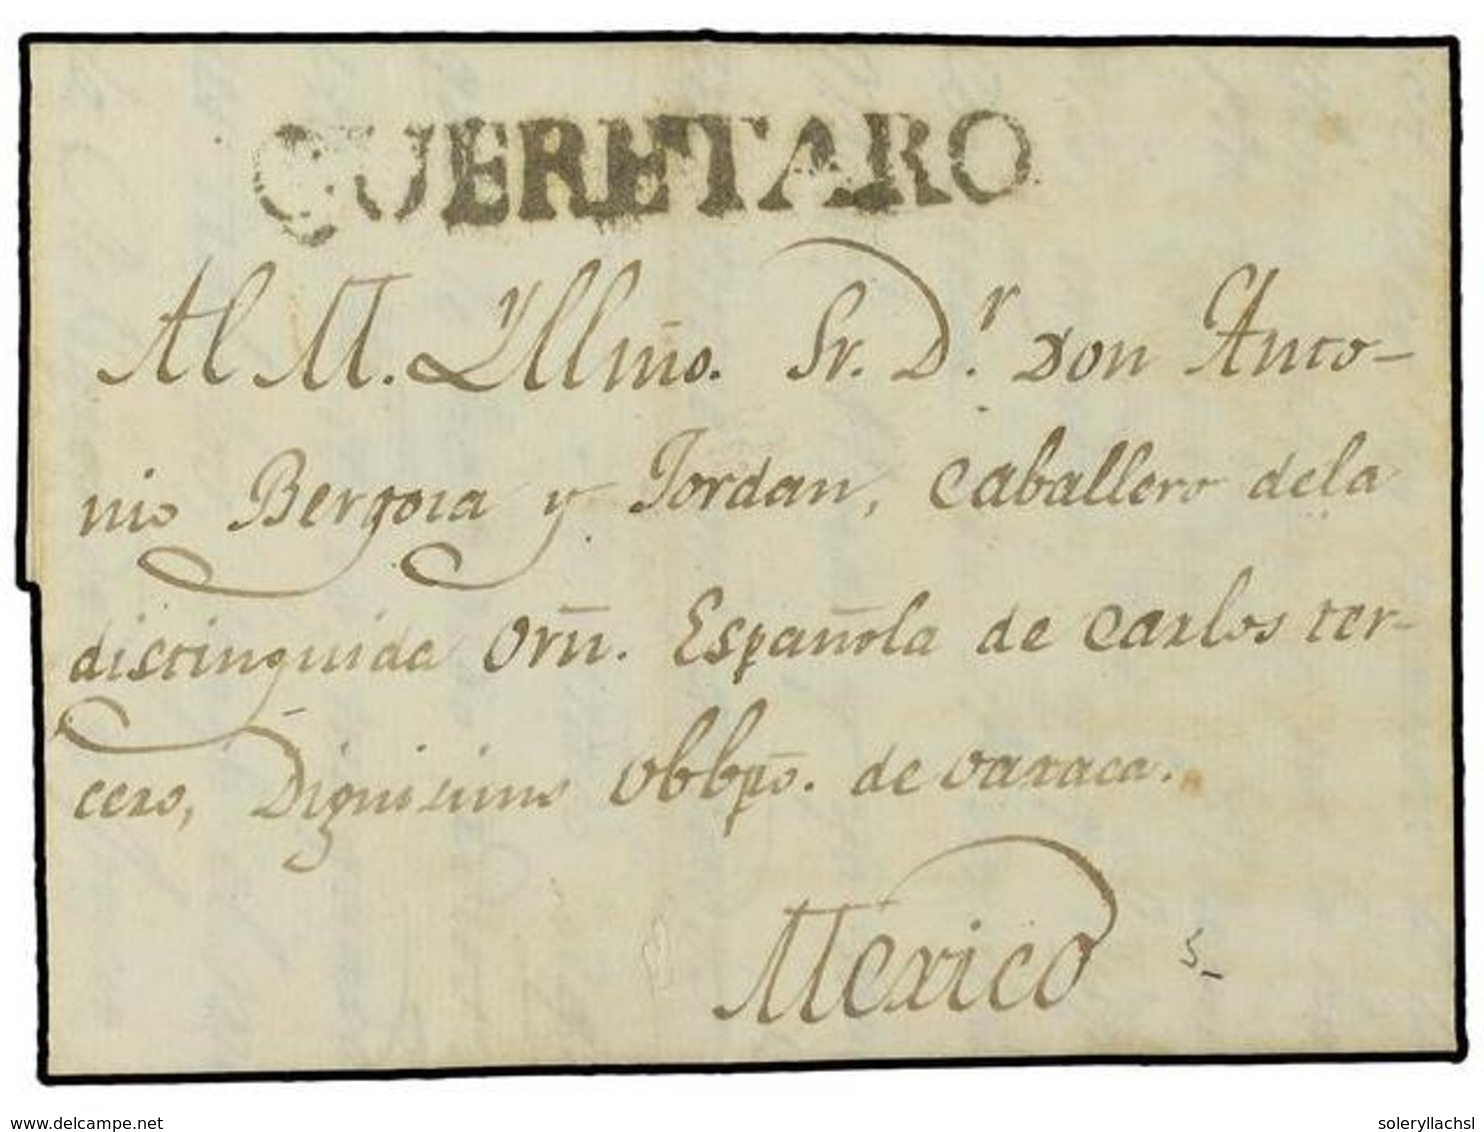 QUERETARO
Al M. Yllmo. Sr. Dr. Don Anto-
nio Bergosa y Jordan, Caballero dela
distinguida Orñ. Española de Carlos ter-
cero, Dignisimo Obbpo. de Oaxaca.
Mexico
delcampe.net
soleryllachsl